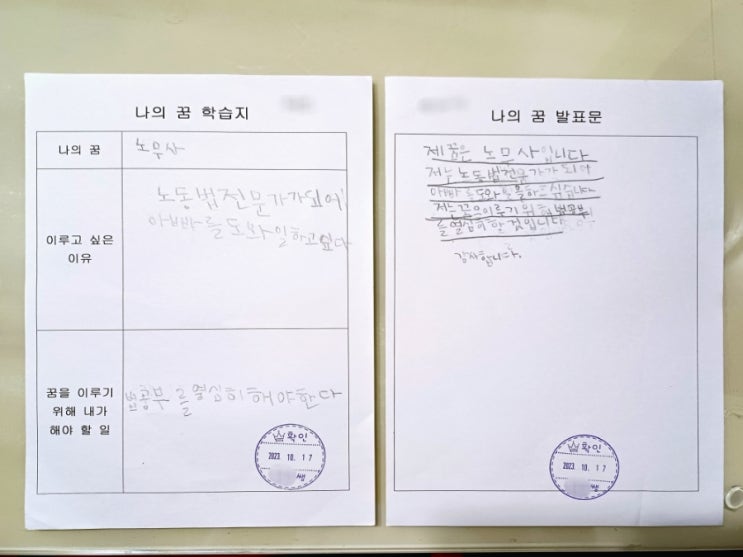 나의 꿈 학습지
나의 꿈
노무사
이루고 싶은
이유
노동법전문가가되어
아빠를 도와 일하고싶다
꿈을 이루기
위해 내가
해야 할 일
법공부를 열심히해야한다
확인
2023. 10. 17
쌤
나의 꿈 발표문
제 꿈은 노무사입니다
저는 노동법전문가가 되어
아빠를 도와 일을하고 싶습니다
저는 꿈을이루기 위해 법공부
를 열심히 할 것입니다
감사합니다.
확인
2023. 10. 17
쌤